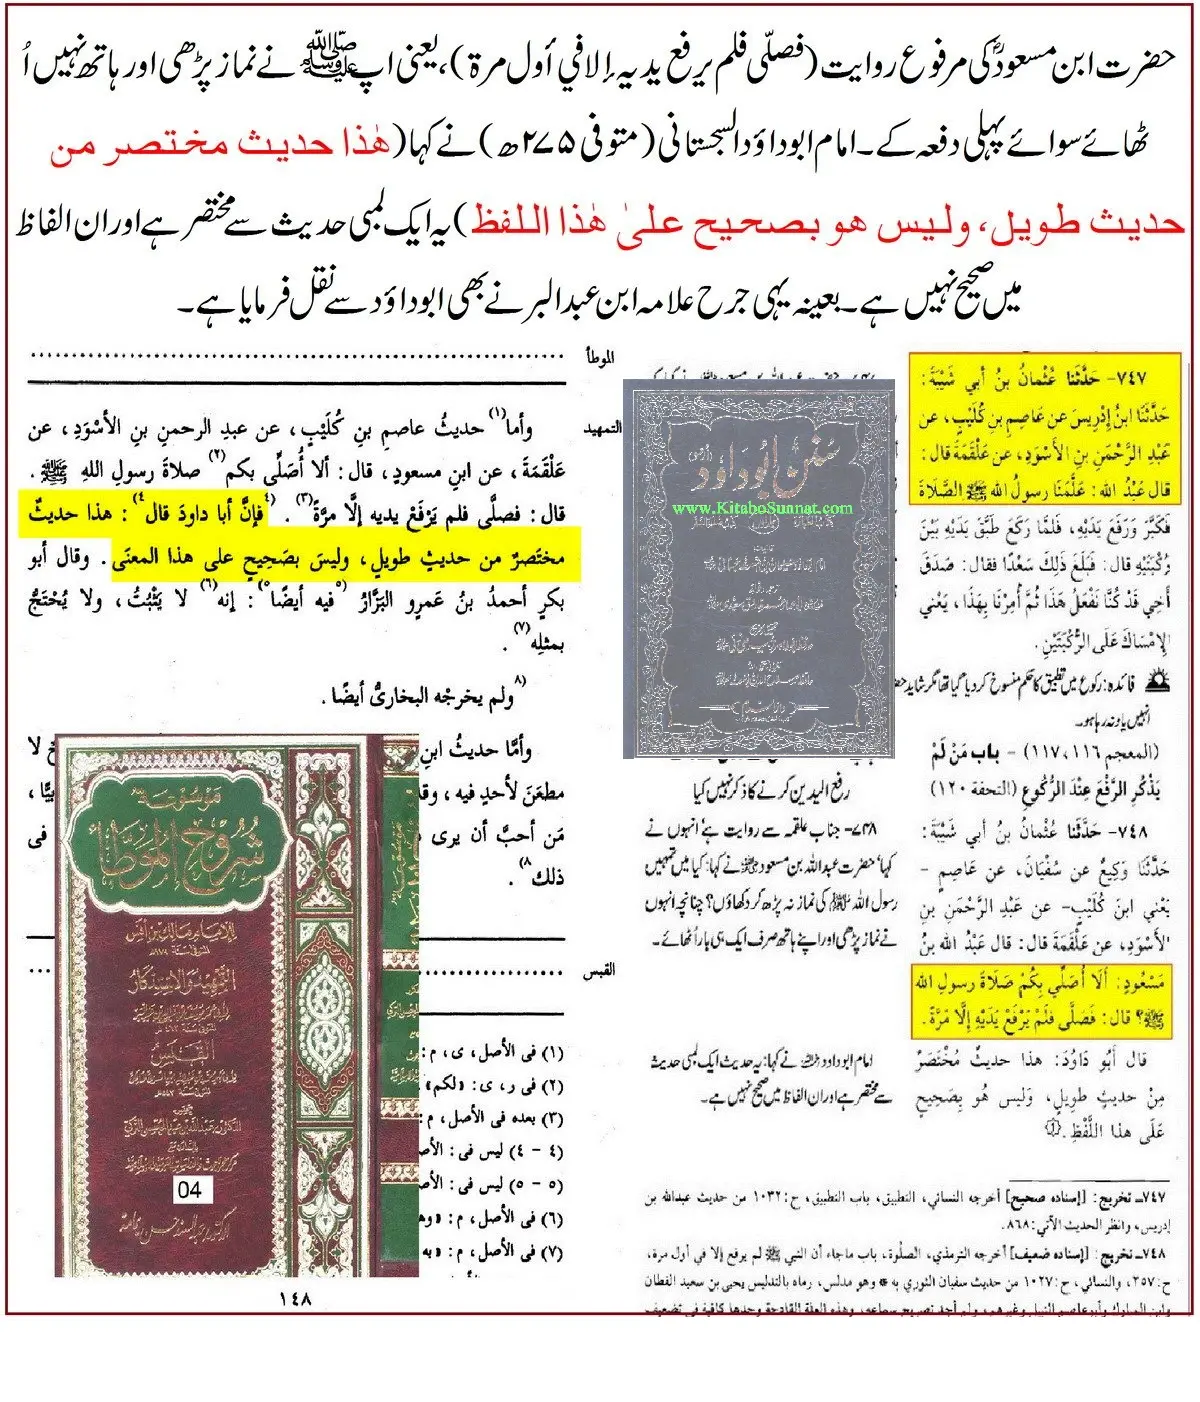 حضرت ابن مسعودؓ کی مرفوع روایت (فصلّی فلم یرفع یدیہ إلا في أول مرة)، یعنی اپ ﷺ نے نماز پڑھی اور ہاتھ نہیں اُ
ٹھائے سوائے پہلی دفعہ کے۔ امام ابوداؤد السجستانی (متوفی ۲۷۵ھ) نے کہا (ھٰذا حدیث مختصر من
حدیث طویل، ولیس ھو بصحیح علیٰ ھٰذا اللفظ) یہ ایک لمبی حدیث سے مختصر ہے اور ان الفاظ
میں صحیح نہیں ہے۔ بعینہ یہی جرح علامہ ابن عبدالبر نے بھی ابوداؤد سے نقل فرمایا ہے۔
الموطأ
التمهيد
وأما(١) حديثُ عاصمِ بنِ كُلَيْبٍ، عن عبدِ الرحمنِ بنِ الأَسْوَدِ، عن
عَلْقَمَةَ، عن ابنِ مسعودٍ، قال: ألا أُصَلِّى بكم(٢) صلاةَ رسولِ اللهِ ﷺ.
قال: فصلَّى فلم يَرْفَعْ يديه إلَّا مرَّةً(٣). (٤فإنَّ أبا داودَ قال٤): هذا حديثٌ
مختَصرٌ من حديثٍ طويلٍ، وليسَ بصَحِيحٍ على هذا المعنَى. وقال أبو
بكرٍ أحمدُ بنُ عمرٍو البَزَّارُ (٥فيه أيضًا٥): إنه(٦) لا يَثْبُتُ، ولا يُحْتَجُّ
بمثلِه(٧).
(٨ولم يخرجْه البخارىُّ أيضًا.
وأمَّا حديثُ ابنِ
مطعَنَ لأحدٍ فيه، وقد
مَن أحبَّ أن يرى
فى
ذلك٨).
القبس
(١) فى الأصل، ى، م:
(٢) فى ر، ى: «لكم»
(٣) بعده فى الأصل، م:
(٤ - ٤) ليس فى: الأص
(٥ - ٥) ليس فى: الأص
(٦) فى الأصل، م: «وه
(٧) فى الأصل، م: «به
١٤٨
موسوعة
شروح الموطأ
للإمام مالك بن أنس
التمهيد والاستذكار
القبس
04
سنن ابو داود
www.KitaboSunnat.com
٧٤٧- حَدَّثَنا عُثْمانُ بنُ أبي شَيْبَةَ:
حَدَّثَنَا ابنُ إِدْرِيسَ عن عَاصِمِ بنِ كُلَيْبٍ، عن
عَبْدِ الرَّحْمَنِ بنِ الأَسْوَدِ، عَنْ عَلْقَمَةَ قال:
قال عَبْدُ الله: عَلَّمَنَا رسولُ الله ﷺ الصَّلَاةَ
فَكَبَّرَ وَرَفَعَ يَدَيْهِ، فَلمَّا رَكَعَ طَبَّقَ يَدَيْهِ بَيْنَ
رُكْبَتَيْهِ قال: فَبَلَغَ ذَلِكَ سَعْدًا فقال: صَدَقَ
أَخِي قَدْ كُنَّا نَفْعَلُ هَذَا ثُمَّ أُمِرْنَا بِهَذَا، يَعْني
الإمْسَاكَ عَلَى الرُّكْبَتَيْنِ.
فائدہ: رکوع میں تطبیق کا حکم منسوخ کر دیا گیا تھا مگر شاید حض
انہیں یاد نہ رہا ہو۔
(المعجم ١١٦، ١١٧) - باب مَنْ لَمْ
يَذْكُرِ الرَّفْعَ عِنْدَ الرُّكُوعِ (التحفة ١٢٠)
رفع الیدین کرنے کا ذکر نہیں کیا
٧٤٨- حَدَّثَنا عُثْمانُ بنُ أبي شَيْبَةَ:
حَدَّثَنَا وَكِيعٌ عن سُفْيَانَ، عن عَاصِمٍ -
يَعْنِي ابنَ كُلَيْبٍ- عن عَبْدِ الرَّحْمَنِ بنِ
الأَسْوَدِ، عن عَلْقَمَةَ قال: قال عَبْدُ الله بنُ
مَسْعُودٍ: أَلَا أُصَلِّي بِكُمْ صَلَاةَ رسولِ الله
ﷺ؟ قال: فَصَلَّى فَلَمْ يَرْفَعْ يَدَيْهِ إِلَّا مَرَّةً.
قال أَبُو دَاوُدَ: هذا حديثٌ مُخْتَصَرٌ
مِنْ حديثٍ طوِيلٍ، وَلَيْسَ هُو بِصَحِيحٍ
عَلَى هذا اللَّفْظِ.
۷۴۸- جناب علقمہ سے روایت ہے، انہوں نے
کہا، حضرت عبداللہ بن مسعود نے کہا: کیا میں تمہیں
رسول اللہ ﷺ کی نماز نہ پڑھ کر دکھاؤں؟ چنانچہ انہوں
نے نماز پڑھی اور اپنے ہاتھ صرف ایک ہی بار اُٹھائے۔
امام ابوداود نے کہا: یہ حدیث ایک لمبی حدیث
سے مختصر ہے اور ان الفاظ میں صحیح نہیں ہے۔
٧٤٧- تخريج: [إسناده صحيح] أخرجه النسائي، التطبيق، باب التطبيق، ح: ١٠٣٢ من حديث عبدالله بن
إدريس، وانظر الحديث الآتي: ٨٦٨.
٧٤٨- تخريج: [إسناده ضعيف] أخرجه الترمذي، الصلٰوة، باب ماجاء أن النبي ﷺ لم يرفع إلا في أول مرة،
ح: ٢٥٧، والنسائي، ح: ١٠٢٧ من حديث سفيان الثوري به * وهو مدلس، رماه بالتدليس يحيى بن سعيد القطان
وابن المبارك وأبوعاصم النبيل وغيرهم، ولم أجد تصريح سماعه، وهذه العلة القادحة وحدها كافية في تضعيف